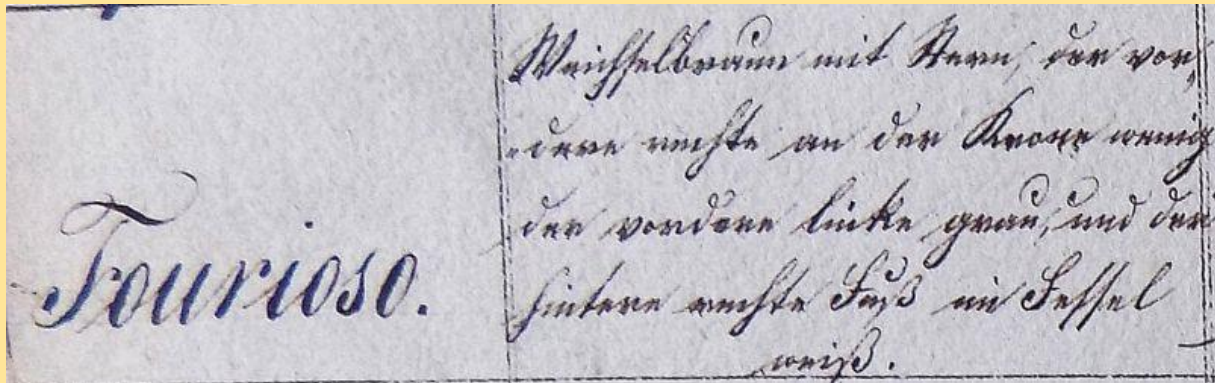 Weichselbraun mit Stern, der vor-
-dere rechte an der Krone wenig
der vordere linke grau, und der
Fourioso.
hintere rechte Fuß im Fessel
weiß.